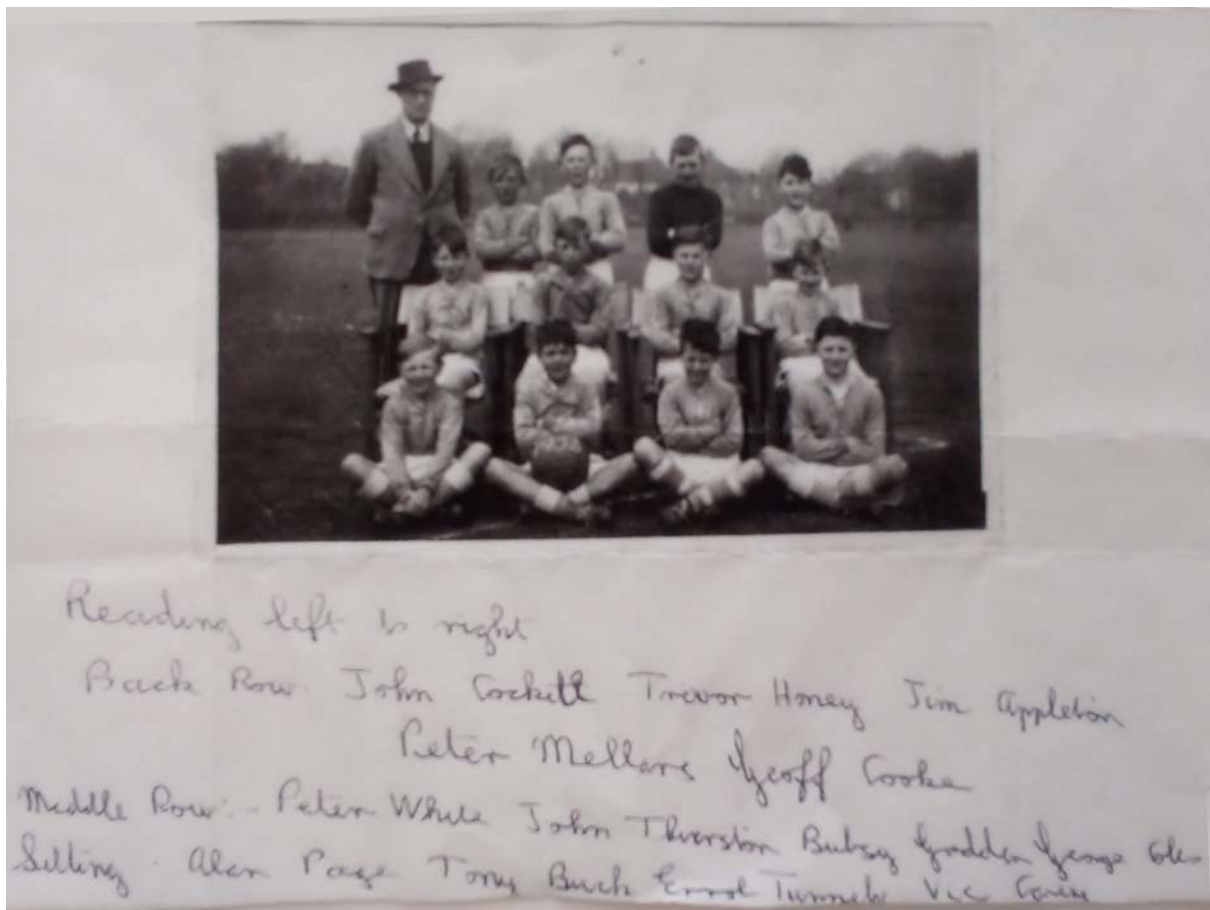 Reading left to right
Back Row John Cockell Trevor Honey Jim Appleton
Peter Mellars Geoff Cooke
Middle Row:- Peter White John Thurston Bubsy Godden George
Sitting Alan Page Tony Buck Errol Vic